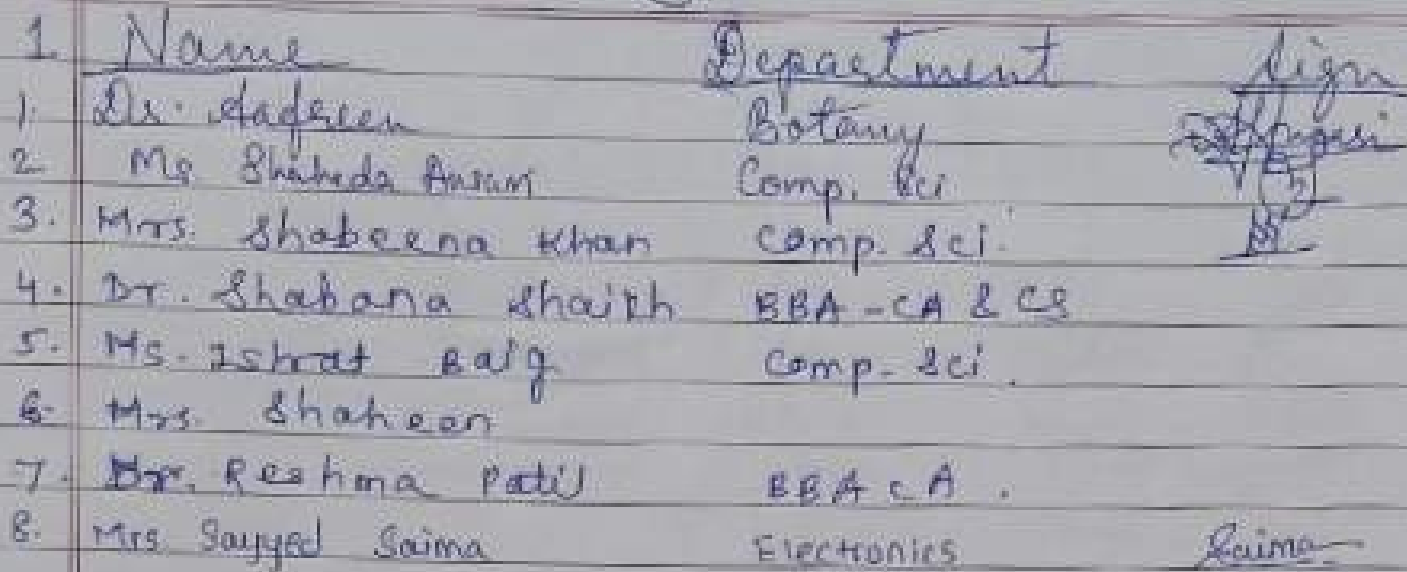 1. Name Department Sign
1. Dr. Aafreen Botany
2. Ms. Shaheda Ansari Comp. Sci
3. Mrs. Shabeena Khan Comp. Sci.
4. Dr. Shabana Shaikh BBA-CA & CS
5. Ms. Ishrat Baig Comp. Sci.
6. Mrs. Shaheen
7. Dr. Reshma Patil BBA CA.
8. Mrs Sayyed Saima Electronics Saima